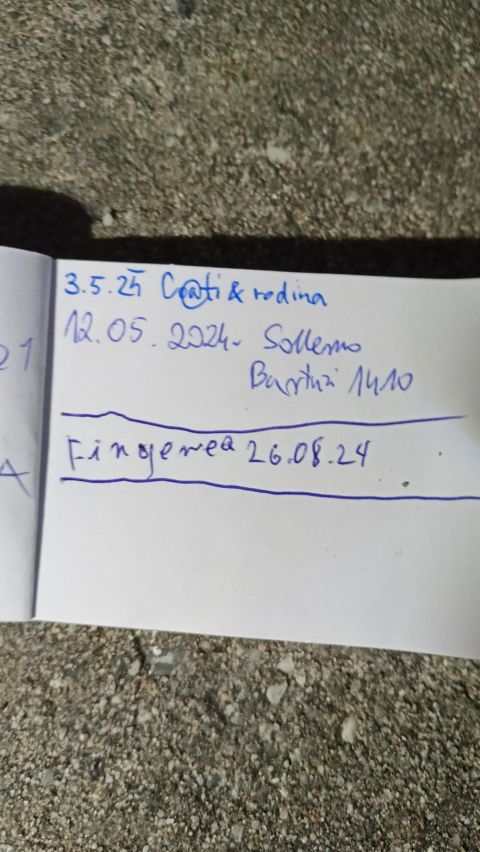 3.5.24 C@ti & rodina
12.05.2024 Sollerno
1410
Fingerrea 26.08.24
21
A